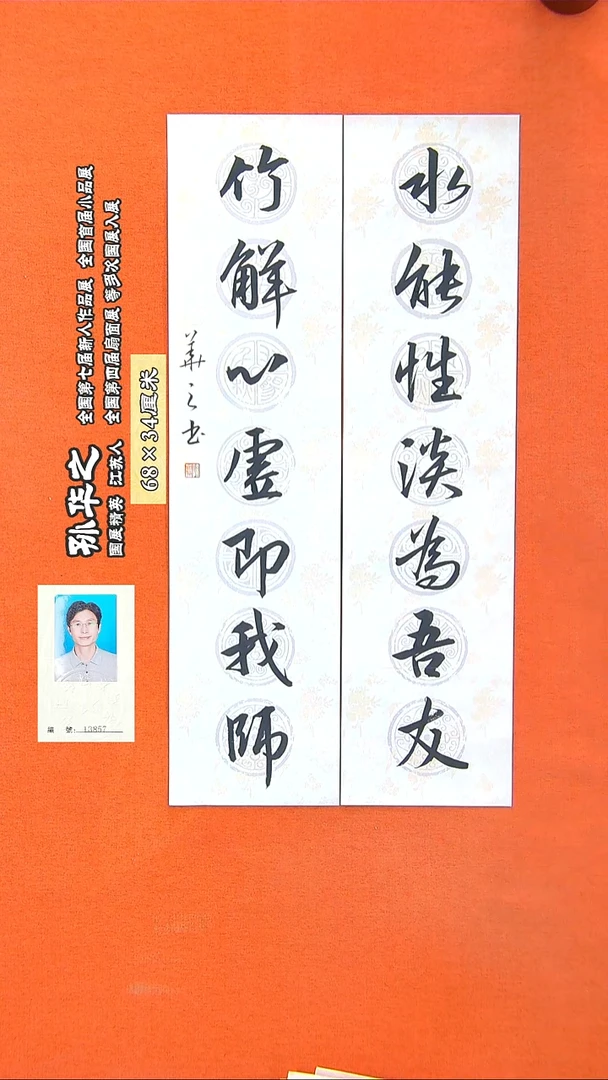 水能性淡為吾友
竹解心虛即我師
華之书
孙华之
国展精英 江苏人
全国第七届新人作品展 全国首届小品展
全国第四届扇面展 等多次国展入展
68×34厘米
編 號：13857